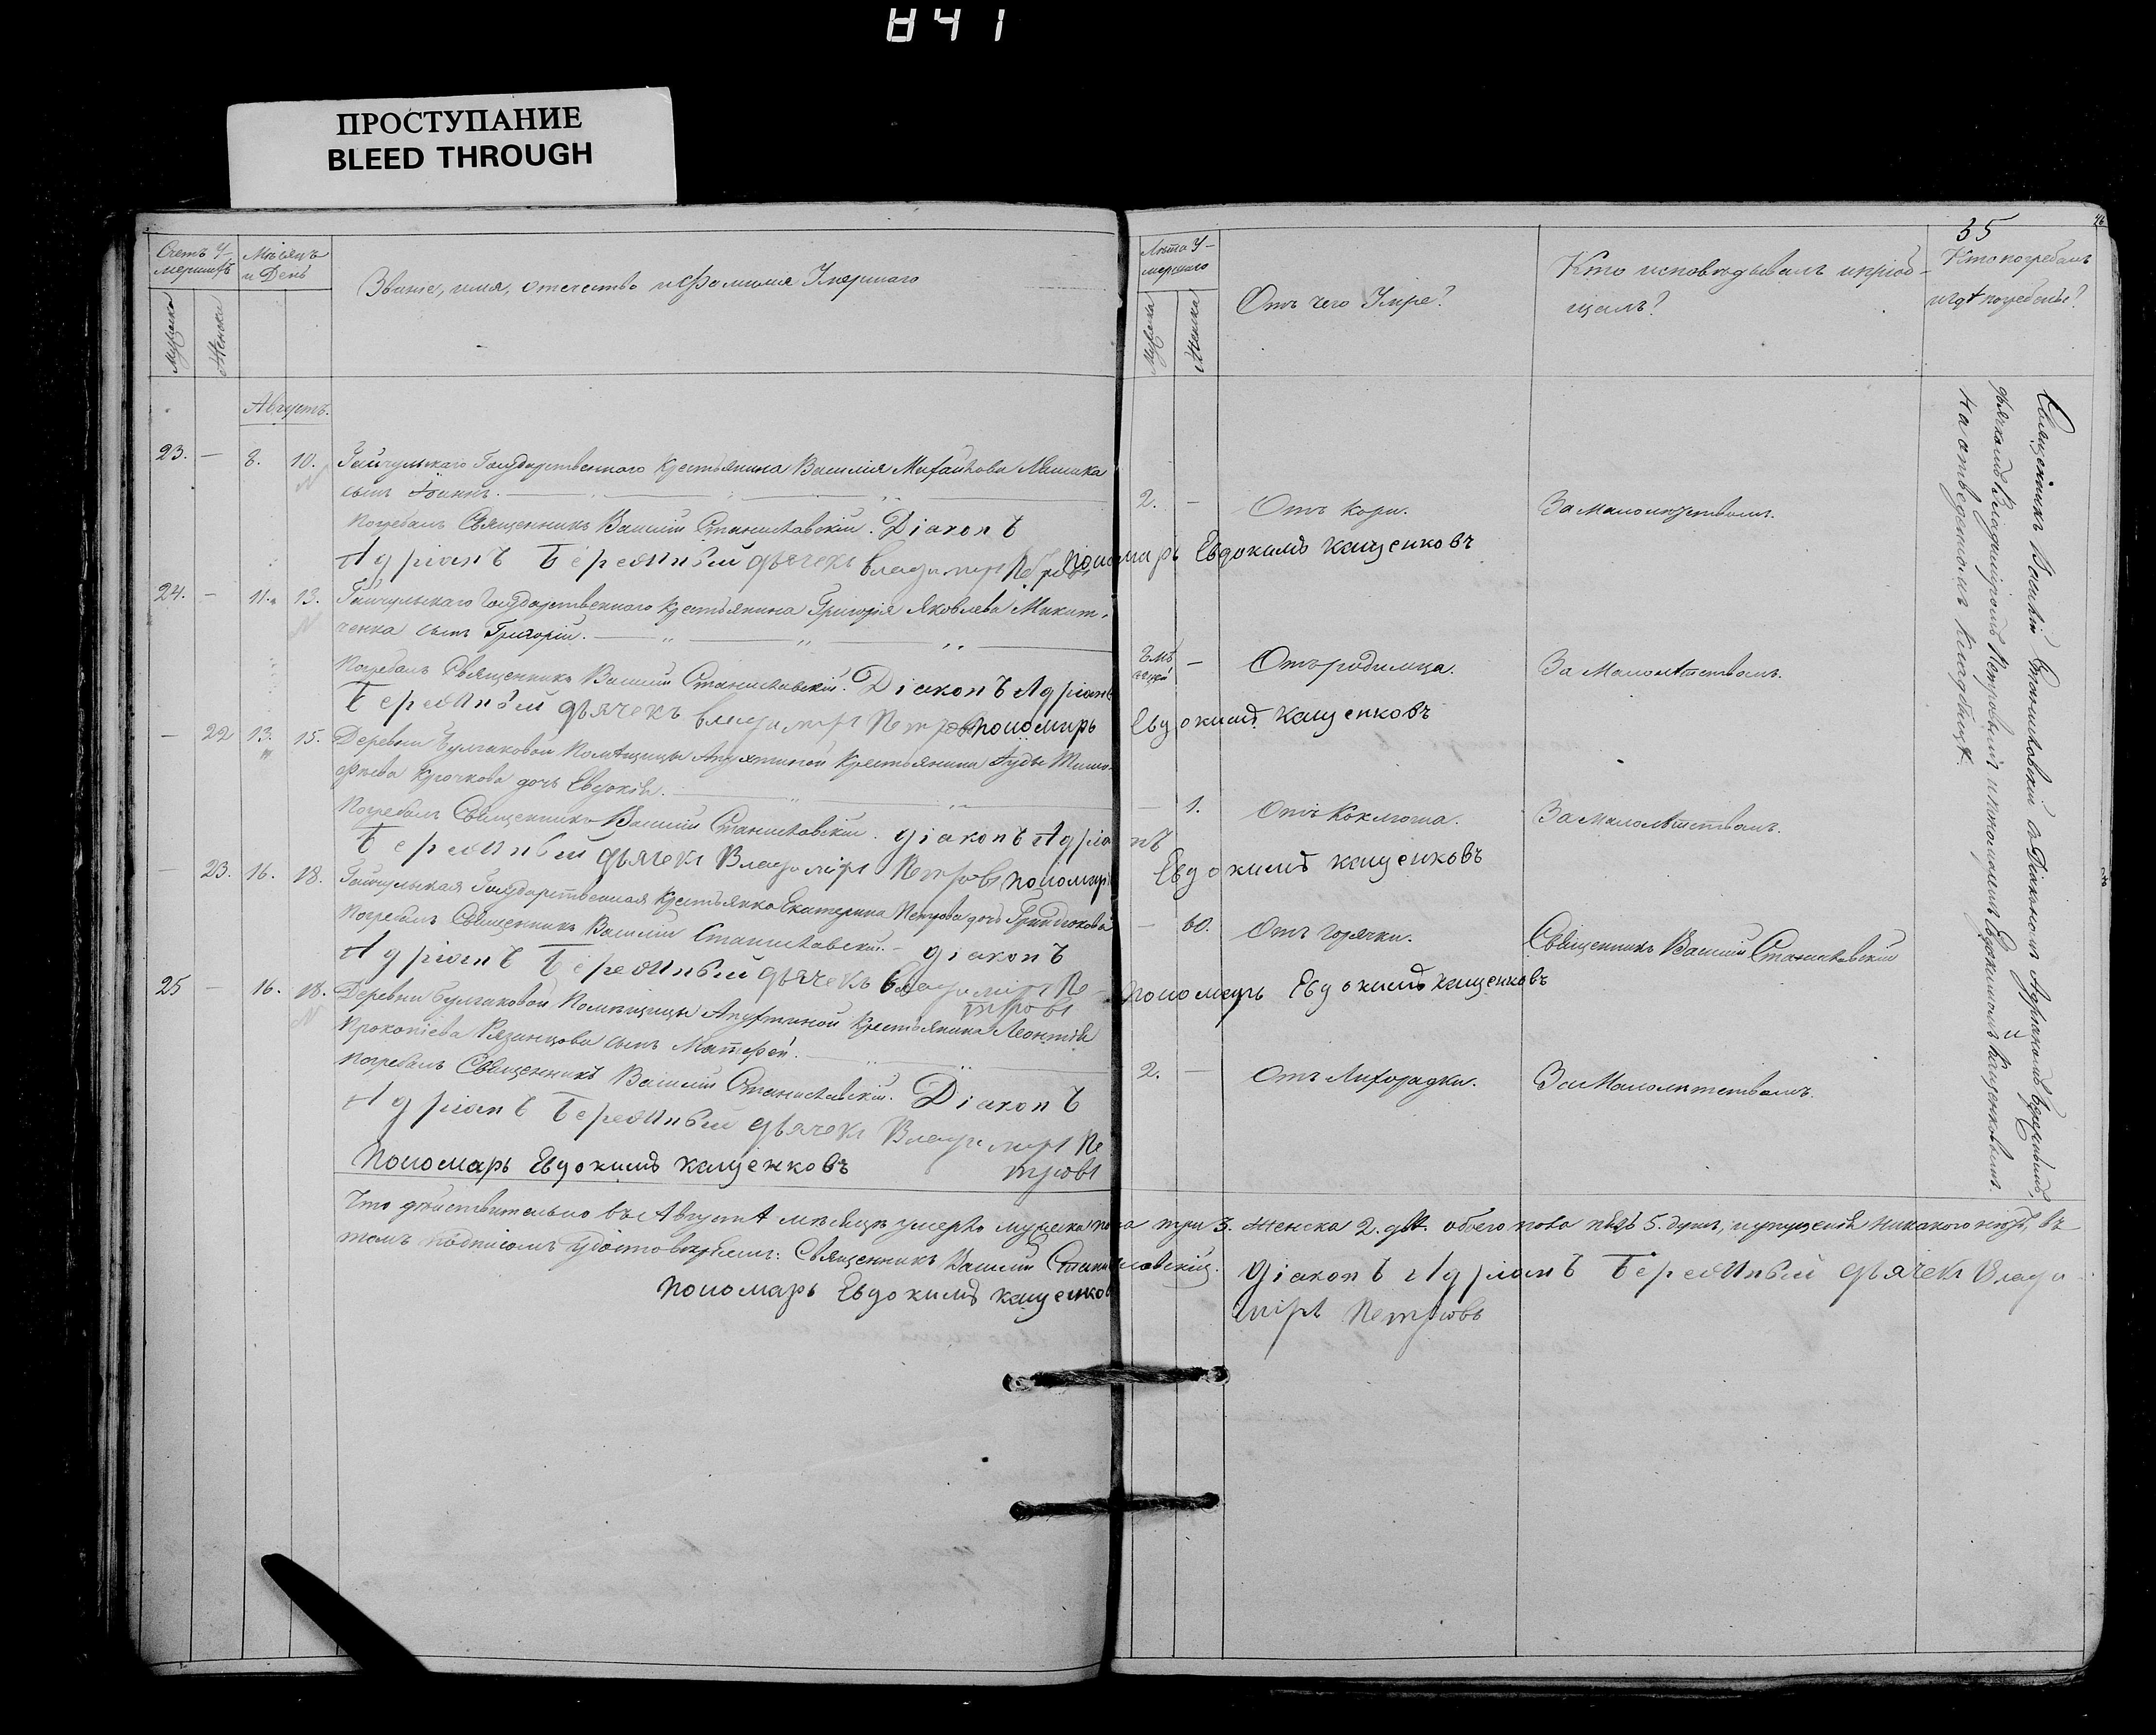 841
ПРОСТУПАНИЕ
BLEED THROUGH
35
46
Счетъ У-
мершихъ
Мѣсяцъ
и День
Званіе, имя, отечество и фамилія Умершаго
Мужеска
Женска
Лѣта У-
мершаго
Мужеска
Женска
Отъ чего Умре?
Кто исповѣдывалъ и пріоб-
щалъ?
Кто погребалъ
и гдѣ погребены?
Августъ.
23. — 8. 10. Гайчульскаго Государственнаго крестьянина Василія Михайлова
сынъ Іоаннъ.
2. — Отъ кори. За малолѣтствомъ.
Погребалъ Священникъ Василій Станиславскій. Діаконъ
Адріанъ Бережный дьячекъ Владиміръ Петровъ Пономарь Евдокимъ Кащенковъ
24. — 11. 13. Гайчульскаго Государственнаго крестьянина Григорія Яковлева Микит-
ченка сынъ Григорій.
— Отъ родимца. За малолѣтствомъ.
Погребалъ Священникъ Василій Станиславскій. Діаконъ Адріанъ
Бережный дьячекъ Владиміръ Петровъ Пономарь Евдокимъ Кащенковъ
— 22 13. 15. Деревни Булгаковой Помѣщицы Апухтиной Крестьянина Іуды Тимо-
фѣева Крючкова дочь Евдокія.
— 1. Отъ Коклюша. За малолѣтствомъ.
Погребалъ Священникъ Василій Станиславскій. Діаконъ Адріанъ
Бережный дьячекъ Владиміръ Петровъ Пономарь Евдокимъ Кащенковъ
— 23. 16. 18. Гайчульская Государственная Крестьянка Екатерина Петрова дочь
— 60. Отъ горячки. Священникъ Василій Станиславскій
Погребалъ Священникъ Василій Станиславскій. — Діаконъ
Адріанъ Бережный дьячекъ Владиміръ Пе-
тровъ Пономарь Евдокимъ Кащенковъ
25 — 16. 18. Деревни Булгаковой Помѣщицы Апухтиной Крестьянина Леонтія
Прокопіева Рязанцова сынъ Матфей.
2. — Отъ Лихорадки. За Малолѣтствомъ.
Погребалъ Священникъ Василій Станиславскій. Діаконъ
Адріанъ Бережный дьячекъ Владиміръ Пе
тровъ
Пономарь Евдокимъ Кащенковъ
Священникъ Василій Станиславскій съ Діакономъ Адріаномъ Бережнымъ,
дьячкомъ Владиміромъ Петровымъ и пономаремъ Евдокимомъ Кащенковымъ.
на отведенномъ кладбищѣ.
Что дѣйствительно въ Августѣ мѣсяцѣ умерло мужеска пола три 3. женска 2. двѣ. обоего пола пять 5. душъ, и пропущенія никакого нѣтъ, въ
томъ подписомъ удостовѣряемъ: Священникъ Василій Станиславскій. Діаконъ Адріанъ Бережный дьячекъ Влади-
міръ Петровъ
Пономарь Евдокимъ Кащенков